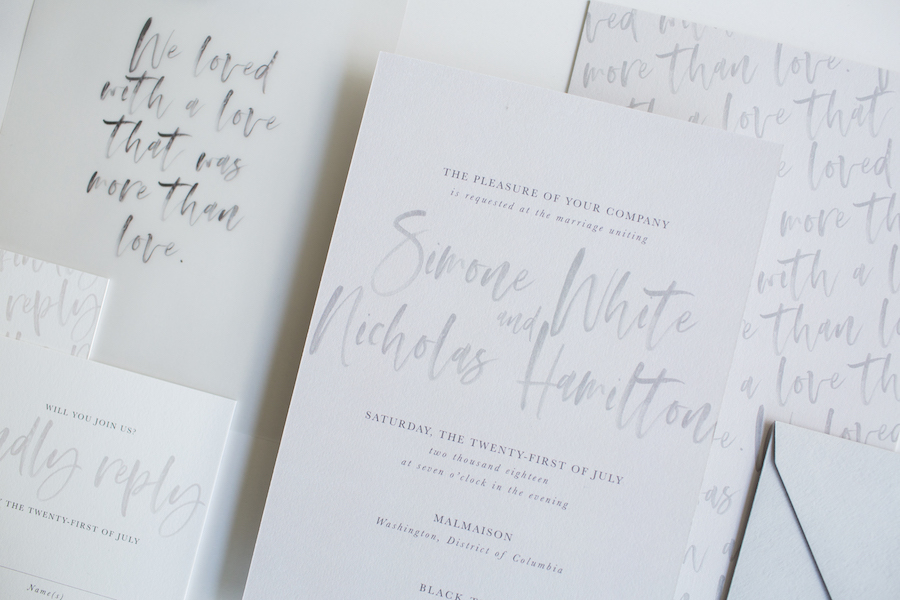 We loved
with a love
that was
more than
love.
reply
WILL YOU JOIN US?
reply
THE TWENTY-FIRST OF JULY
Name(s)
THE PLEASURE OF YOUR COMPANY
is requested at the marriage uniting
Simone White
and
Nicholas Hamilton
SATURDAY, THE TWENTY-FIRST OF JULY
two thousand eighteen
at seven o'clock in the evening
MALMAISON
Washington, District of Columbia
BLACK T
more than love.
love that
loved
more than
with a l
than lo
a love th
loved